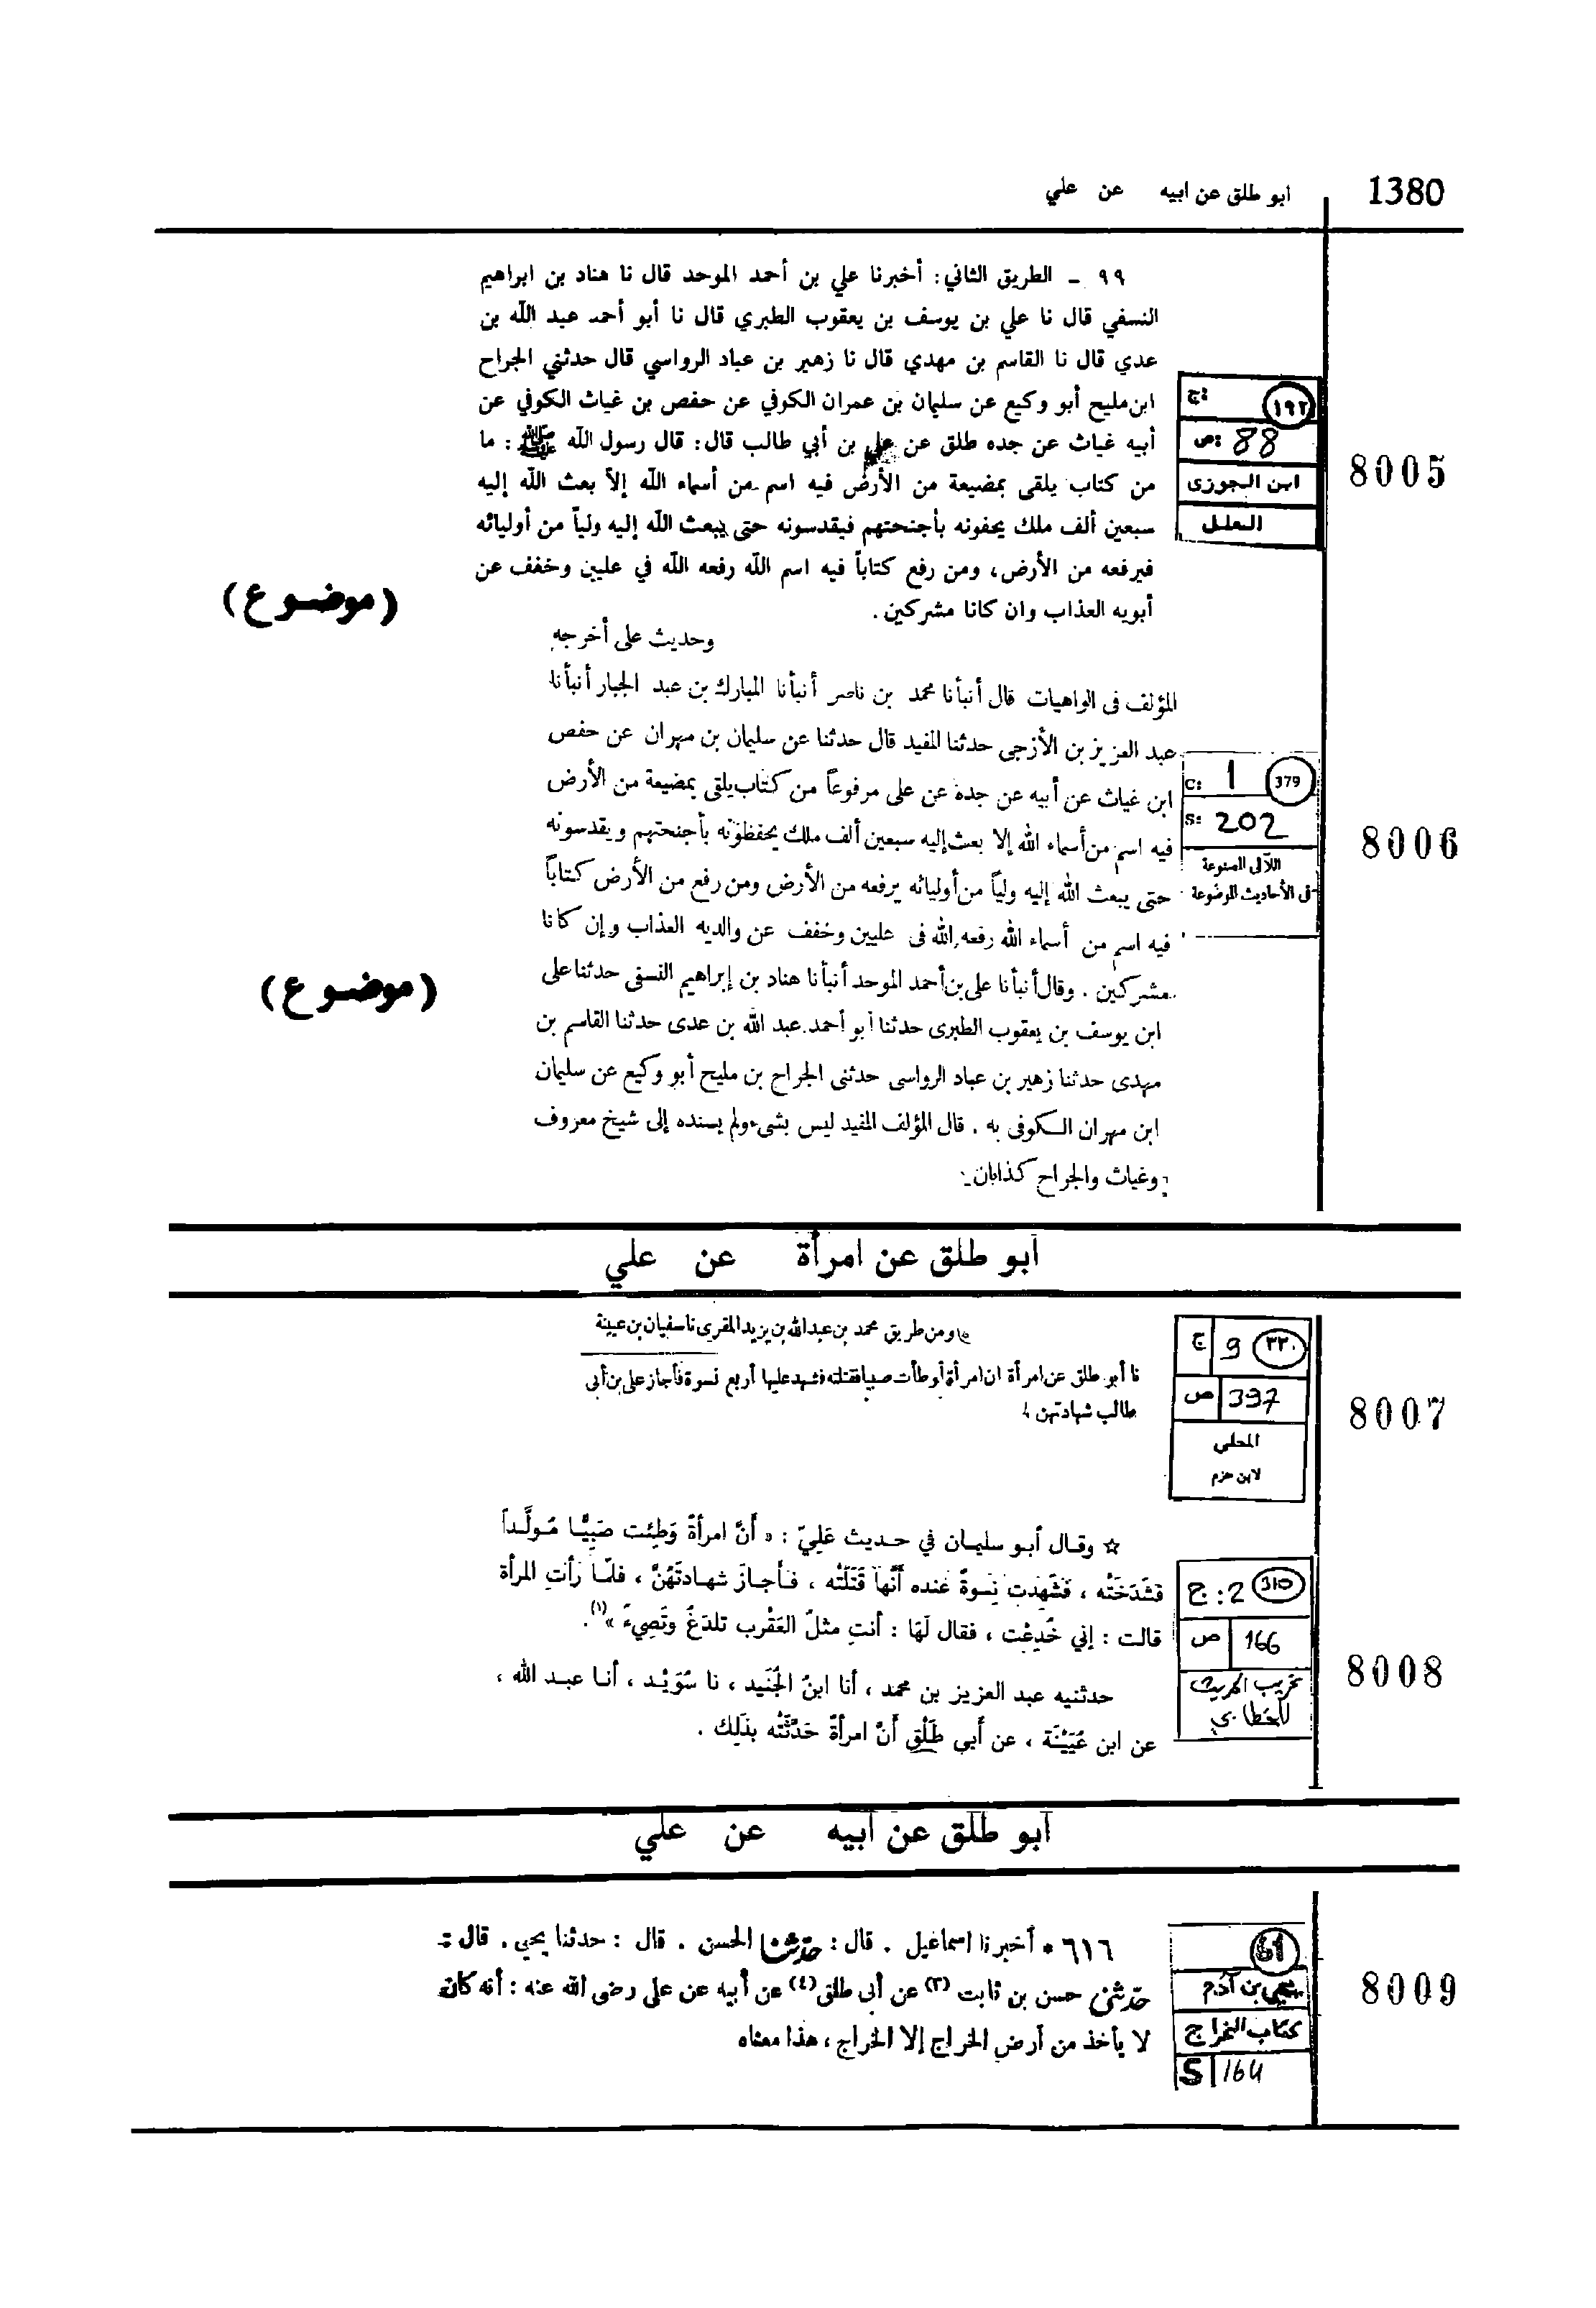 1380
ابو طلق عن ابيه عن علي
٩٩ - الطريق الثاني: أخبرنا علي بن أحمد الموحد قال نا هناد بن ابراهيم
النسفي قال نا علي بن يوسف بن يعقوب الطبري قال نا أبو أحمد عبد الله بن
عدي قال نا القاسم بن مهدي قال نا زهير بن عباد الرواسي قال حدثني الجراح
ابن مليح أبو وكيع عن سليمان بن عمران الكوفي عن حفص بن غياث الكوفي عن
أبيه غياث عن جده طلق عن علي بن أبي طالب قال: قال رسول الله ﷺ: ما
من كتاب يلقى بمضيعة من الأرض فيه اسم من أسماء الله إلاّ بعث الله إليه
سبعين ألف ملك يحفونه بأجنحتهم فيقدسونه حتى يبعث الله إليه ولياً من أوليائه
فيرفعه من الأرض، ومن رفع كتاباً فيه اسم الله رفعه الله في عليين وخفف عن
أبويه العذاب وان كانا مشركين.
(موضوع)
ج: ١٩٢
ص: 88
ابن الجوزى
العلل
8005
وحديث على أخرجه
المؤلف فى الواهيات قال أنبأنا محمد بن ناصر أنبأنا المبارك بن عبد الجبار أنبأنا
عبد العزيز بن الأزجى حدثنا المفيد قال حدثنا عن سليمان بن مهران عن حفص
ابن غياث عن أبيه عن جده عن على مرفوعاً من كتاب يلقى بمضيعة من الأرض
فيه اسم من أسماء الله إلا بعث إليه سبعين ألف ملك يحفظونه بأجنحتهم ويقدسونه
حتى يبعث الله إليه ولياً من أوليائه يرفعه من الأرض ومن رفع من الأرض كتاباً
فيه اسم من أسماء الله رفعه الله فى عليين وخفف عن والديه العذاب وإن كانا
مشركين . وقال أنبأنا على بن أحمد الموحد أنبأنا هناد بن إبراهيم النسفى حدثنا على
ابن يوسف بن يعقوب الطبرى حدثنا أبو أحمد عبد الله بن عدى حدثنا القاسم بن
مهدى حدثنا زهير بن عباد الرواسى حدثنى الجراح بن مليح أبو وكيع عن سليمان
ابن مهران الكوفى به . قال المؤلف المفيد ليس بشىء ولم يسنده إلى شيخ معروف
وغياث والجراح كذابان
(موضوع)
C: 1 379
S: 202
اللآلى المصنوعة
فى الأحاديث الموضوعة
8006
أبو طلق عن امرأة عن علي
ومن طريق محمد بن عبد الله بن يزيد المقرى نا سفيان بن عيينة
نا أبو طلق عن امرأة ان امرأة أوطأت صبيا فقتلته فشهد عليها أربع نسوة فأجاز على بن أبى
طالب شهادتهن
ج 9 ٣٣٠
ص 397
المحلى
لابن حزم
8007
☆ وقال أبو سليمان في حديث عَلِيّ : « أنَّ امرأةً وَطِئت صَبِيًّا مُولَّداً
فشَدَخَتْه ، فشَهِدت نِسوةٌ عنده أَنَّها قَتَلَتْه ، فأجازَ شهادتَهُنَّ ، فلمّا رأت المرأة
قالت : إني خُدِعْت ، فقال لَهَا : أنتِ مثلُ العَقْرب تلدَغُ وتَصِيءُ »(١).
حدثنيه عبد العزيز بن محمد ، أنا ابنُ الجُنَيد ، نا سُوَيْد ، أنا عبد الله ،
عن ابن عُيَيْنَة ، عن أبي طَلْقٍ أنَّ امرأةً حَدَّثَتْه بذَلِك .
ج: 2 310
ص 166
غريب الحديث
للخطابي
8008
أبو طلق عن أبيه عن علي
٦١٦ * أخبرنا اسماعيل . قال : حدّثنا الحسن . قال : حدثنا يحيى . قال :
حدّثني حسن بن ثابت (٣) عن أبى طلق (٤) عن أبيه عن على رضى الله عنه : أنه كان
لا يأخذ من أرض الخراج إلا الخراج ، هذا معناه
61
يحيى بن آدم
كتاب الخراج
S 164
8009